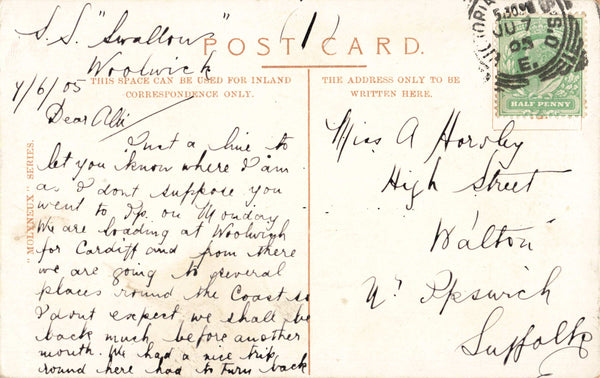 S.S. "Swallow"
Woolwick
7/6/05
POST CARD.
THIS SPACE CAN BE USED FOR INLAND
CORRESPONDENCE ONLY.
THE ADDRESS ONLY TO BE
WRITTEN HERE.
"MOLYNEUX" SERIES.
Dear
Just a line to
let you know where I am
as I dont suppose you
went to Ip. on Monday
We are loading at Woolwich
for Cardiff and from there
we are going to several
places round the Coast so
I dont expect we shall be
back much before another
month. We had a nice trip
round here had to turn back
Miss A Horsley
High Street
Walton
Nr Ipswich
Suffolk
5.30PM
JU 7
05
E.
S.O.
HALF PENNY